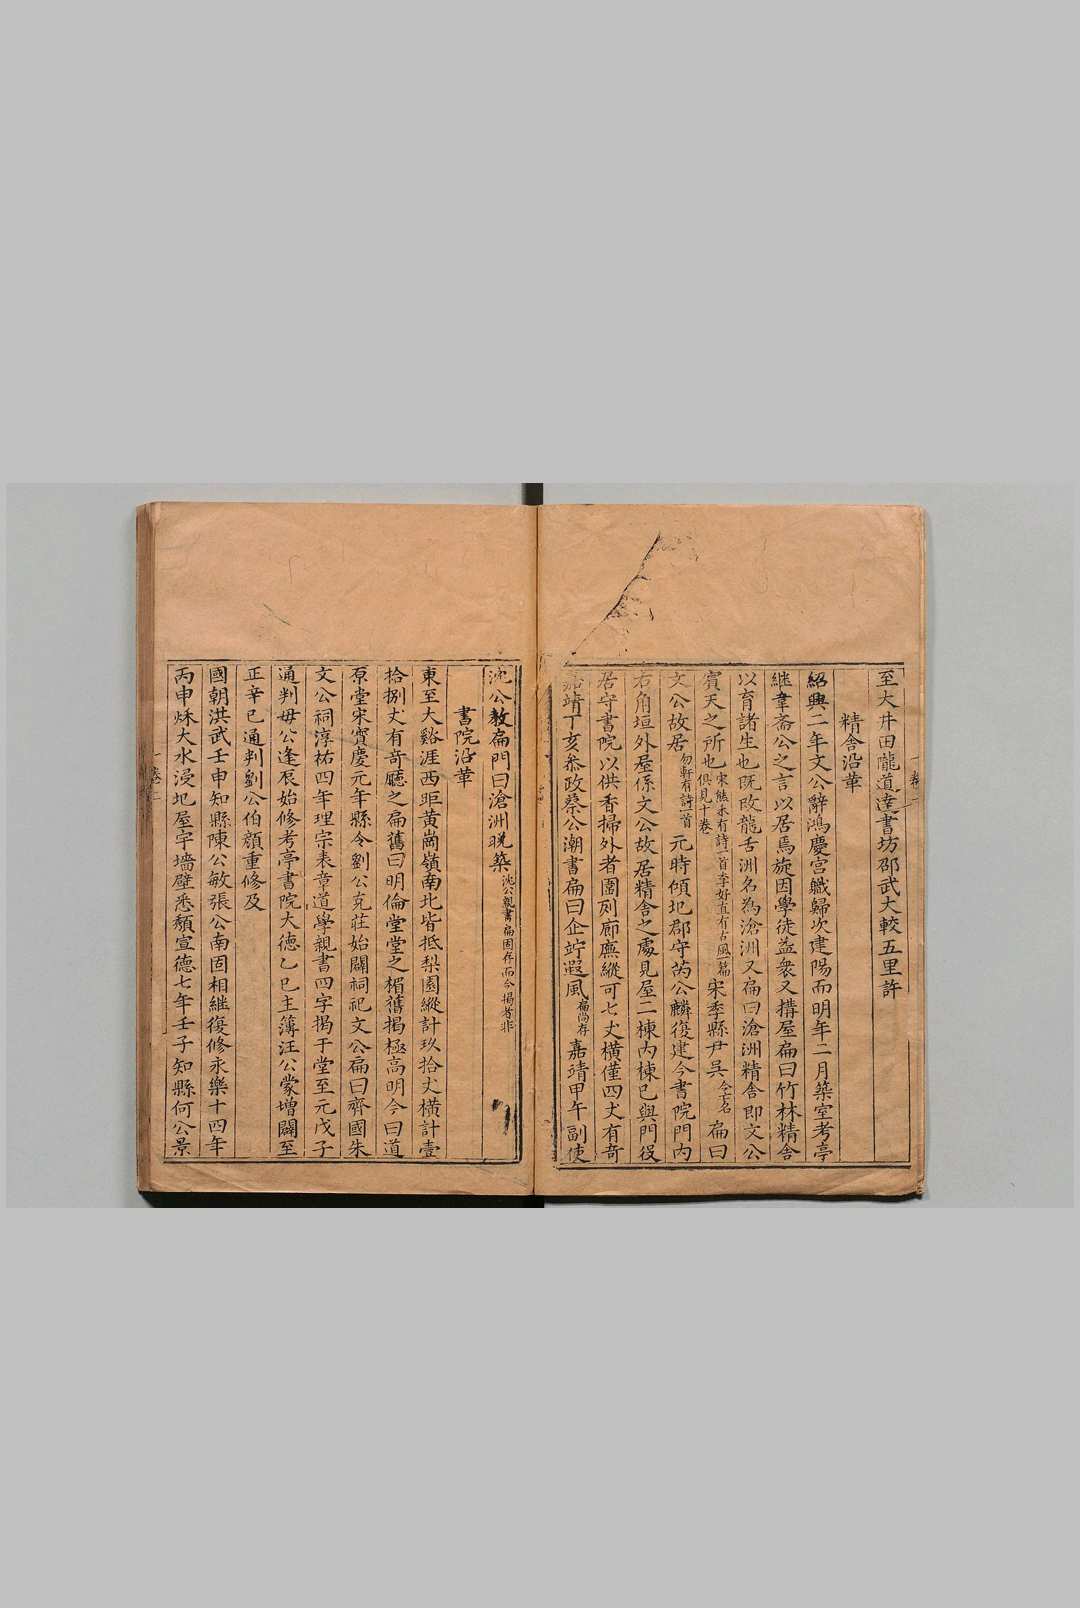 至大井田隴道達書坊邵武大較五里許
精舍沿革
紹興二年文公辭鴻慶宮職歸次建陽而明年二月築室考亭
継韋斋公之言以居焉旋因學徒益衆又搆屋扁曰竹林精舍
以育諸生也既改龍舌洲名為滄洲又扁曰滄洲精舍即文公
賓天之所也宋熊禾有詩一首李好直有古風一篇俱見十卷宋季縣尹吳今亡名扁曰
文公故居勿軒有詩一首元時傾圯郡守芮公麟復建今書院門內
右角垣外屋係文公故居精舍之處見屋二棟內棟已與門役
居守書院以供香掃外者圍列廊廡縱可七丈橫僅四丈有奇
嘉靖丁亥叅政蔡公潮書扁曰企竚遐風扁尚存嘉靖甲午副使
沈公教扁門曰滄洲晚築沈公親書扁固存而今揭者非
書院沿革
東至大谿涯西距黃崗嶺南北皆抵梨園縱計玖拾丈橫計壹
拾捌丈有奇廳之扁舊曰明倫堂堂之楣舊揭極高明今曰道
原堂宋寶慶元年縣令劉公克莊始闢祠祀文公扁曰齊國朱
文公祠淳祐四年理宗表章道學親書四字揭于堂至元戊子
通判毋公逢辰始修考亭書院大德乙巳主簿汪公蒙增闢至
正辛巳通判劉公伯顏重修及
國朝洪武壬申知縣陳公敏張公南固相継復修永樂十四年
丙申秌大水浸圯屋宇墻壁悉頹宣德七年壬子知縣何公景